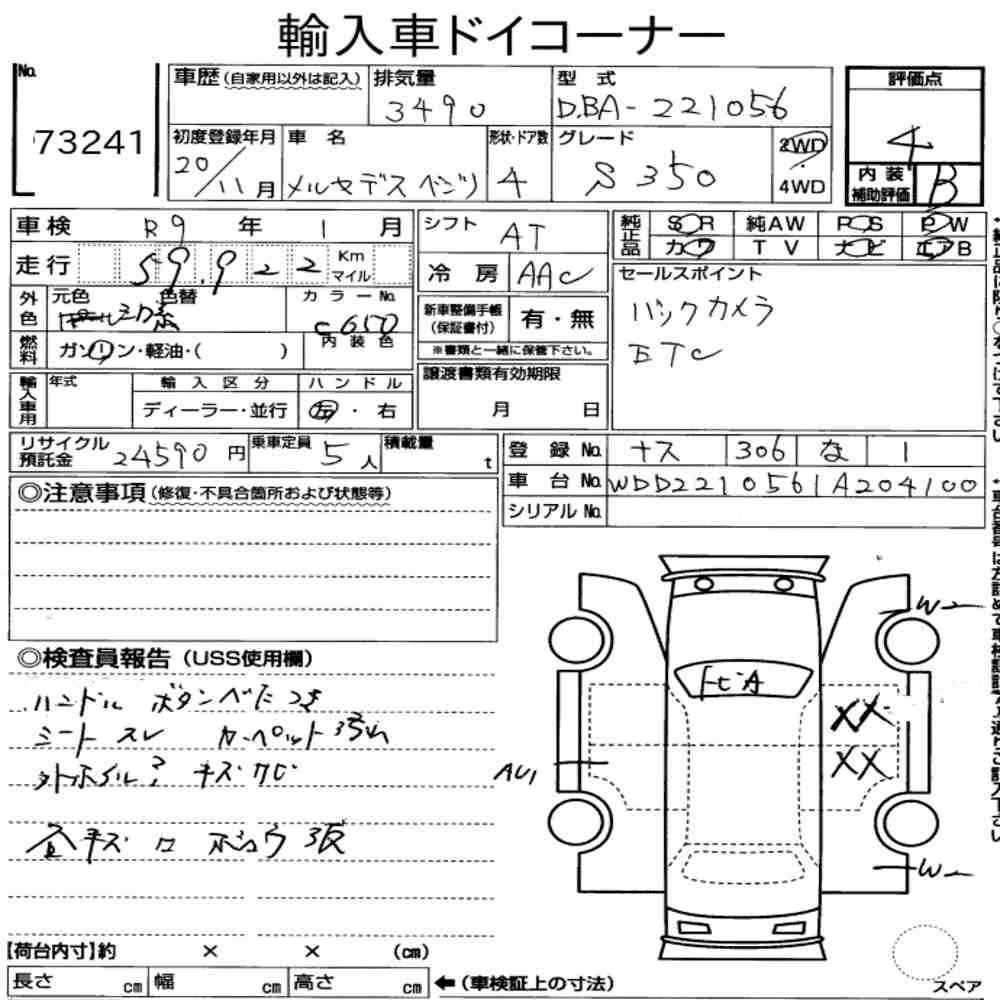 輸入車ドイコーナー
No.
73241
車歴(自家用以外は記入)
排気量
3490
型 式
DBA-221056
評価点
4
初度登録年月
20/11月
車 名
メルセデスベンツ
形状・ドア数
4
グレード
S350
2WD
4WD
内装補助評価
B
車検 R9年 1月
走行 59,922 Km マイル
外色 元色 色替
カラーNo.
C650
内装色
燃料 ガソリン・軽油・( )
輸入車用 年式
輸入区分
ディーラー・並行
ハンドル
左・右
シフト AT
冷房 AAC
新車整備手帳(保証書付) 有・無
※書類と一緒に保管下さい。
譲渡書類有効期限
月 日
純正品 SR 純AW PS PW
カワ TV ナビ エアB
セールスポイント
バックカメラ
ETC
リサイクル預託金 24590円
乗車定員 5人
積載量 t
登録No. ナス 306 な 1
車台No. WDD2210561A204100
シリアルNo.
◎注意事項(修復・不具合箇所および状態等)
◎検査員報告(USS使用欄)
ハンドル ボタンベたつき
シート スレ カーペット汚れ
外ホイル? キズサビ
W2
XX
XX
AU1
【荷台内寸】約 × × (cm)
長さ cm 幅 cm 高さ cm
←(車検証上の寸法)
スペア